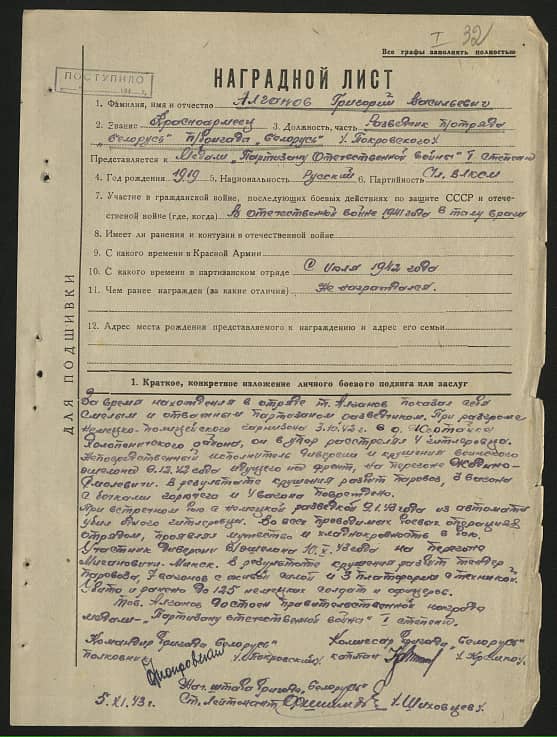 I 32
Все графы заполнять полностью
ПОСТУПИЛО
НАГРАДНОЙ ЛИСТ
1. Фамилия, имя и отчество Алганов Григорий Васильевич
2. Звание Красноармеец 3. Должность, часть Разведчик п/отряда
"Беларусь" п/бригада "Беларусь" /Покровского/
Представляется к Медали "Партизану Отечественной войны" I степени
4. Год рождения 1919 5. Национальность Русский 6. Партийность Чл. ВЛКСМ
7. Участие в гражданской войне, последующих боевых действиях по защите СССР и отече-
ственной войне (где, когда) В отечественной войне 1941 года в тылу врага
8. Имеет ли ранения и контузии в отечественной войне
9. С какого времени в Красной Армии
10. С какого времени в партизанском отряде С июля 1942 года
11. Чем ранее награжден (за какие отличия) Не награждался.
12. Адрес места рождения представляемого к награждению и адрес его семьи
ДЛЯ ПОДШИВКИ
1. Краткое, конкретное изложение личного боевого подвига или заслуг
За время нахождения в отряде т. Алганов показал себя
смелым и отважным партизаном разведчиком. При разгроме
немецко-полицейского гарнизона 3.10.42 г. в д.
Холопеничского района, он в упор расстрелял 4 гитлеровца.
Непосредственный исполнитель диверсии и крушения воинского
эшелона 9.12.42 года идущего на фронт, на перегоне Жодино-
Смолевичи. В результате крушения разбит паровоз, 3 вагона
с бочками горючего и 4 вагона повреждено.
При встречном бою с немецкой разведкой 2.1.43 года из автомата
убил одного гитлеровца. Во всех проводимых боевых операциях
отрядом, проявлял мужество и хладнокровность в бою.
Участник диверсии в/эшелона 10.X.43 года на перегоне
Михановичи-Минск. В результате крушения разбит тендер
паровоза, 7 вагонов с живой силой и 3 платформы с техникой.
Убито и ранено до 125 немецких солдат и офицеров.
Тов. Алганов достоин правительственной награды
медали "Партизану Отечественной войны" I степени.
Командир бригады "Беларусь" Комиссар бригады "Беларусь"
полковник /Покровский/ капитан
Нач. штаба бригады "Беларусь"
5.XI.43 г. Ст. лейтенант /Шиховцев/